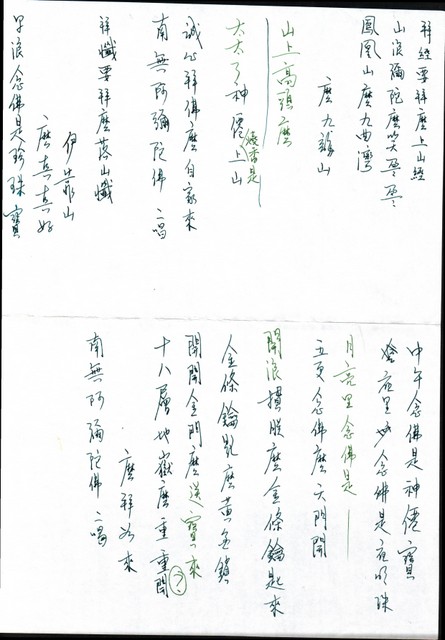 拜經要拜麼上山經
山浪彌陀麼笑盈盈
鳳凰山麼九曲灣
麼九龍山
山上高頭麼
太太了神僊上山
燒香是
誠心拜佛麼自家來
南無阿彌陀佛 二唱
拜懺要拜麼落山懺
伊是靠山
早浪念佛是珍珠寶
麼真真好
中午念佛是神僊寶
夜里念佛是夜明珠
月亮里念佛是
五更念佛麼天門開
開浪摸脫麼金條鑰匙來
金條鑰匙麼黃金鎖
開開金門麼送寶來
十八層地獄麼重重開
麼拜如來
南無阿彌陀佛 二唱